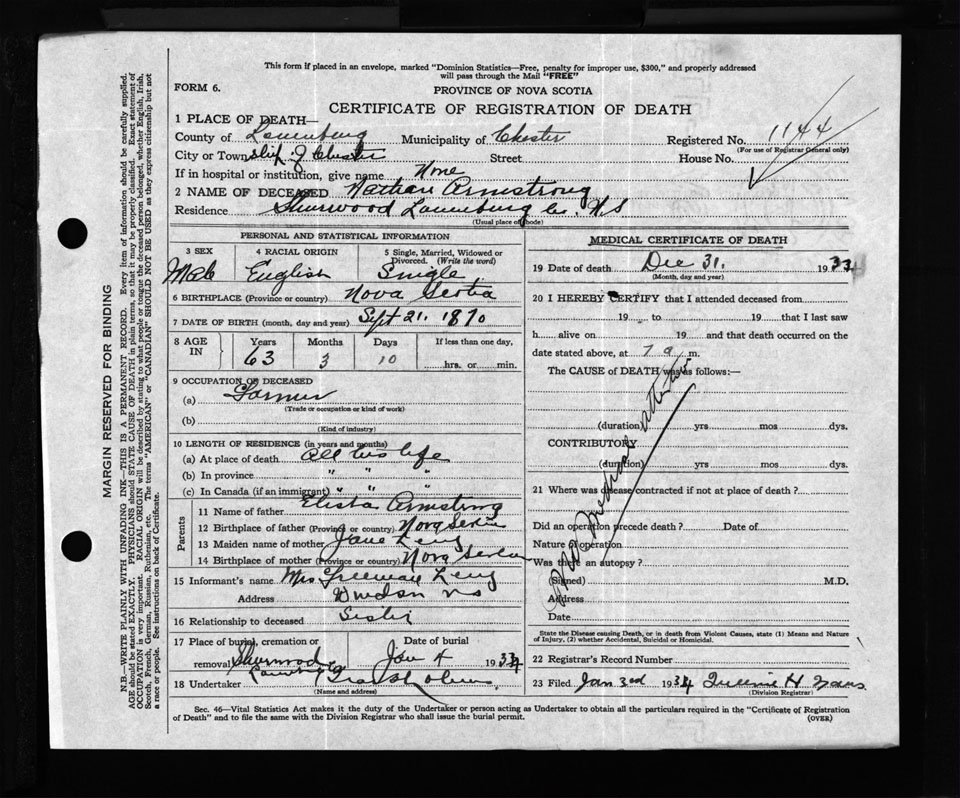 This form if placed in an envelope, marked "Dominion Statistics—Free, penalty for improper use, $300," and properly addressed
will pass through the Mail "FREE"
FORM 6. PROVINCE OF NOVA SCOTIA
CERTIFICATE OF REGISTRATION OF DEATH
1 PLACE OF DEATH—
County of Lunenburg Municipality of Chester Registered No. 1144
(For use of Registrar General only)
City or Town Chester Street House No.
If in hospital or institution, give name None
2 NAME OF DECEASED Nathan Armstrong
Residence Sherwood Lunenburg Co. N S
(Usual place of abode)
PERSONAL AND STATISTICAL INFORMATION
3 SEX 4 RACIAL ORIGIN 5 Single, Married, Widowed or
Divorced. (Write the word)
Male English Single
6 BIRTHPLACE (Province or country) Nova Scotia
7 DATE OF BIRTH (month, day and year) Sept 21. 1870
8 AGE IN Years Months Days If less than one day,
63 3 10 hrs. or min.
9 OCCUPATION OF DECEASED
(a) Farmer
(Trade or occupation or kind of work)
(b)
(Kind of industry)
10 LENGTH OF RESIDENCE (in years and months)
(a) At place of death all his life
(b) In province " " "
(c) In Canada (if an immigrant) " " "
Parents
11 Name of father Elisha Armstrong
12 Birthplace of father (Province or country) Nova Scotia
13 Maiden name of mother Jane
14 Birthplace of mother (Province or country) Nova Scotia
15 Informant's name Mrs Freeman
Address N S
16 Relationship to deceased Sister
17 Place of burial, cremation or Date of burial
removal Sherwood Jan 4 1934
Lunenburg
18 Undertaker
(Name and address)
MEDICAL CERTIFICATE OF DEATH
19 Date of death Dec 31. 1933
(Month, day and year)
20 I HEREBY CERTIFY that I attended deceased from
19 to 19 that I last saw
h alive on 19 and that death occurred on the
date stated above, at 7 a m.
The CAUSE of DEATH was as follows:—
(duration) yrs mos dys.
CONTRIBUTORY
(duration) yrs mos dys.
21 Where was disease contracted if not at place of death?
Did an operation precede death? Date of
Nature of operation
Was there an autopsy?
(Signed) M.D.
Address
Date
No Medical attention
State the Disease causing Death, or in death from Violent Causes, state (1) Means and Nature
of Injury, (2) whether Accidental, Suicidal or Homicidal.
22 Registrar's Record Number
23 Filed Jan 3rd 1934
(Division Registrar)
Sec. 46—Vital Statistics Act makes it the duty of the Undertaker or person acting as Undertaker to obtain all the particulars required in the "Certificate of Registration
of Death" and to file the same with the Division Registrar who shall issue the burial permit.
(OVER)
MARGIN RESERVED FOR BINDING
N.B.—WRITE PLAINLY WITH UNFADING INK—THIS IS A PERMANENT RECORD. Every item of information should be carefully supplied.
AGE should be stated EXACTLY. PHYSICIANS should STATE CAUSE OF DEATH in plain terms, so that it may be properly classified. Exact statement of
OCCUPATION is very important. RACIAL ORIGIN will be described by stating to what people or tongue the deceased person belonged, whether English, Irish,
Scotch, French, German, Russian, Ruthenian, etc. The terms "AMERICAN" or "CANADIAN" SHOULD NOT BE USED as they express citizenship but not
a race or people. See instructions on back of Certificate.